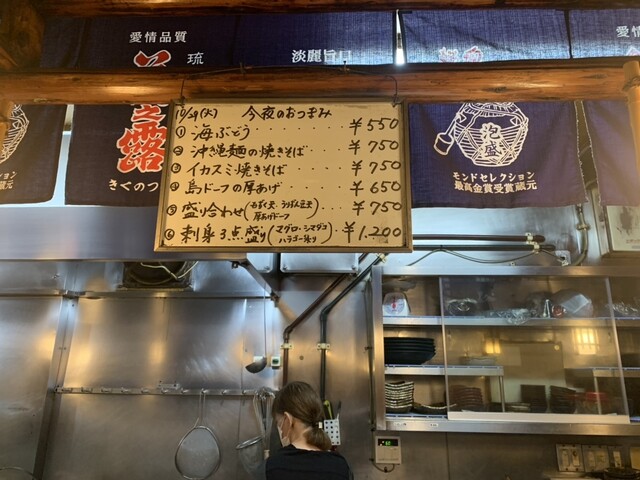 愛情品質
琉
淡麗旨口
愛情
露
きくのつ
泡盛
モンドセレクション
最高金賞受賞蔵元
モンドセ
最高金
10/29(火) 今夜のおつまみ
① 海ぶどう ¥550
② 沖縄麺の焼きそば ¥750
③ イカスミ焼きそば ¥750
④ 島ドーフの厚あげ ¥650
⑤ 盛り合わせ ¥750
厚あげドーフ
⑥ 刺身3点盛り(マグロ・シマダコ ¥1,200